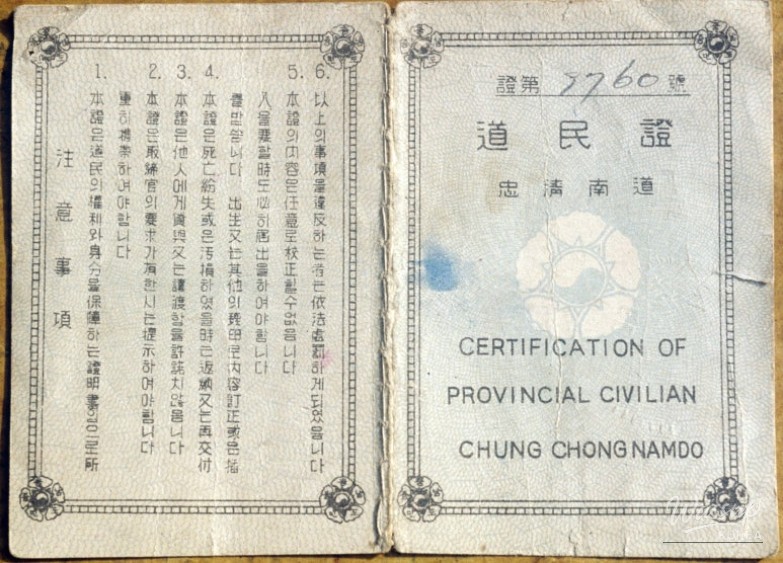 注意事項
1. 本證은道民의權利와身分을保障하는證明書임으로所
重히携帶하여야합니다
2. 本證은取締官의要求가有한시는提示하여야합니다
3. 本證은他人에게貸與又는讓渡함을許諾치않음니다
4. 本證은死亡紛失或은汚損하였을時는返納又는再交付
를받읍니다 出生又는其他의理由로內容訂正或은揷
入을要할時도必히届出을하여야합니다
5. 本證의內容은任意로校正할수없읍니다
6. 以上의事項을違反하는者는依法處罰하게되었읍니다
證第 號
道民證
忠清南道
CERTIFICATION OF
PROVINCIAL CIVILIAN
CHUNG CHONG NAMDO